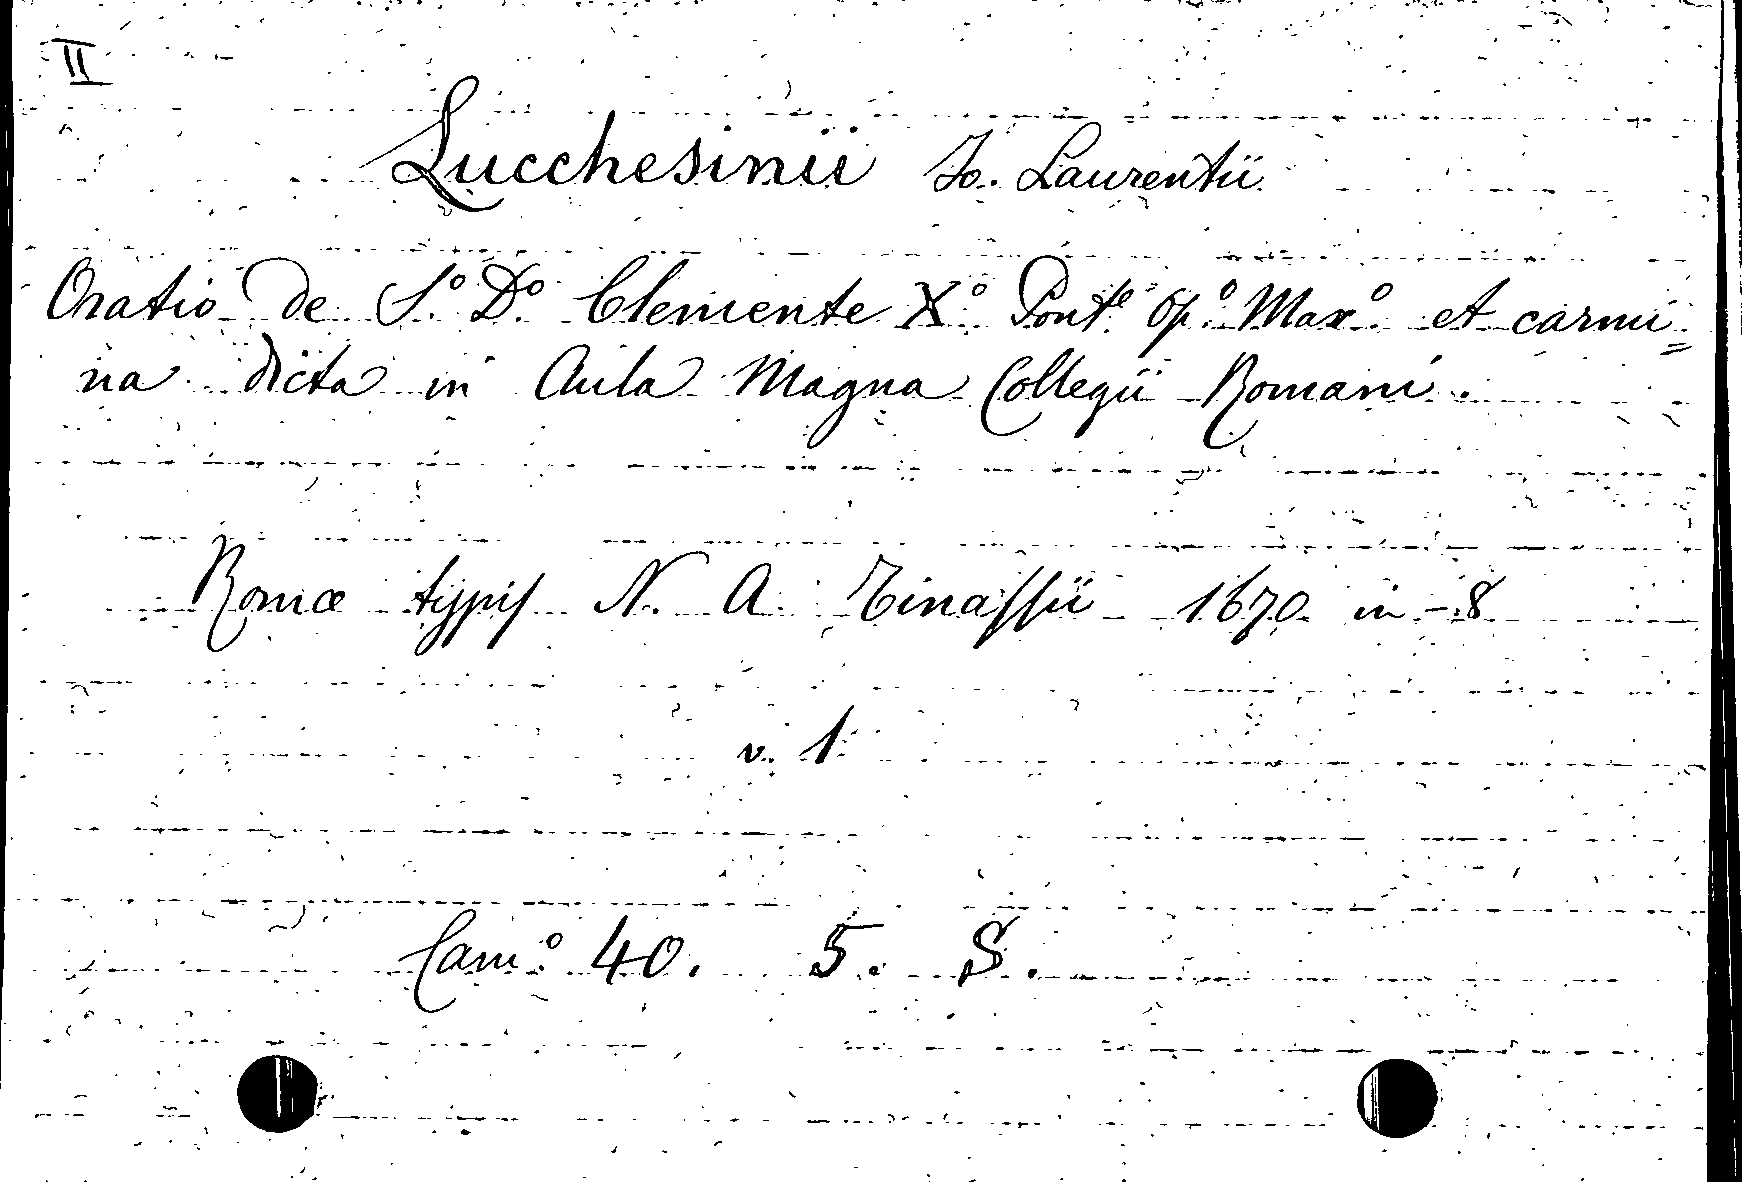 II
Lucchesinii Jo. Laurentii
Oratio de S.º D.º Clemente X.º Pont.e Op.º Max.º et carmi=
na dicta in Aula Magna Collegii Romani.
Romæ typis N. A. Tinassii 1670 in-8
v. 1
Cam.º 40. 5. S.